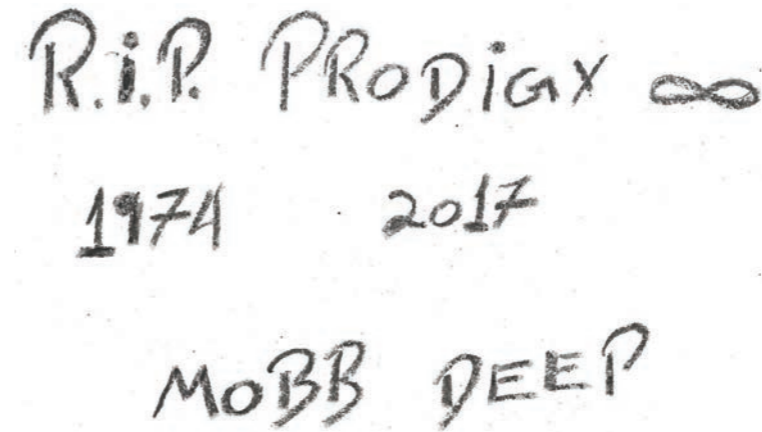 R.i.P. PRODiGY ∞
1974 2017
MOBB DEEP